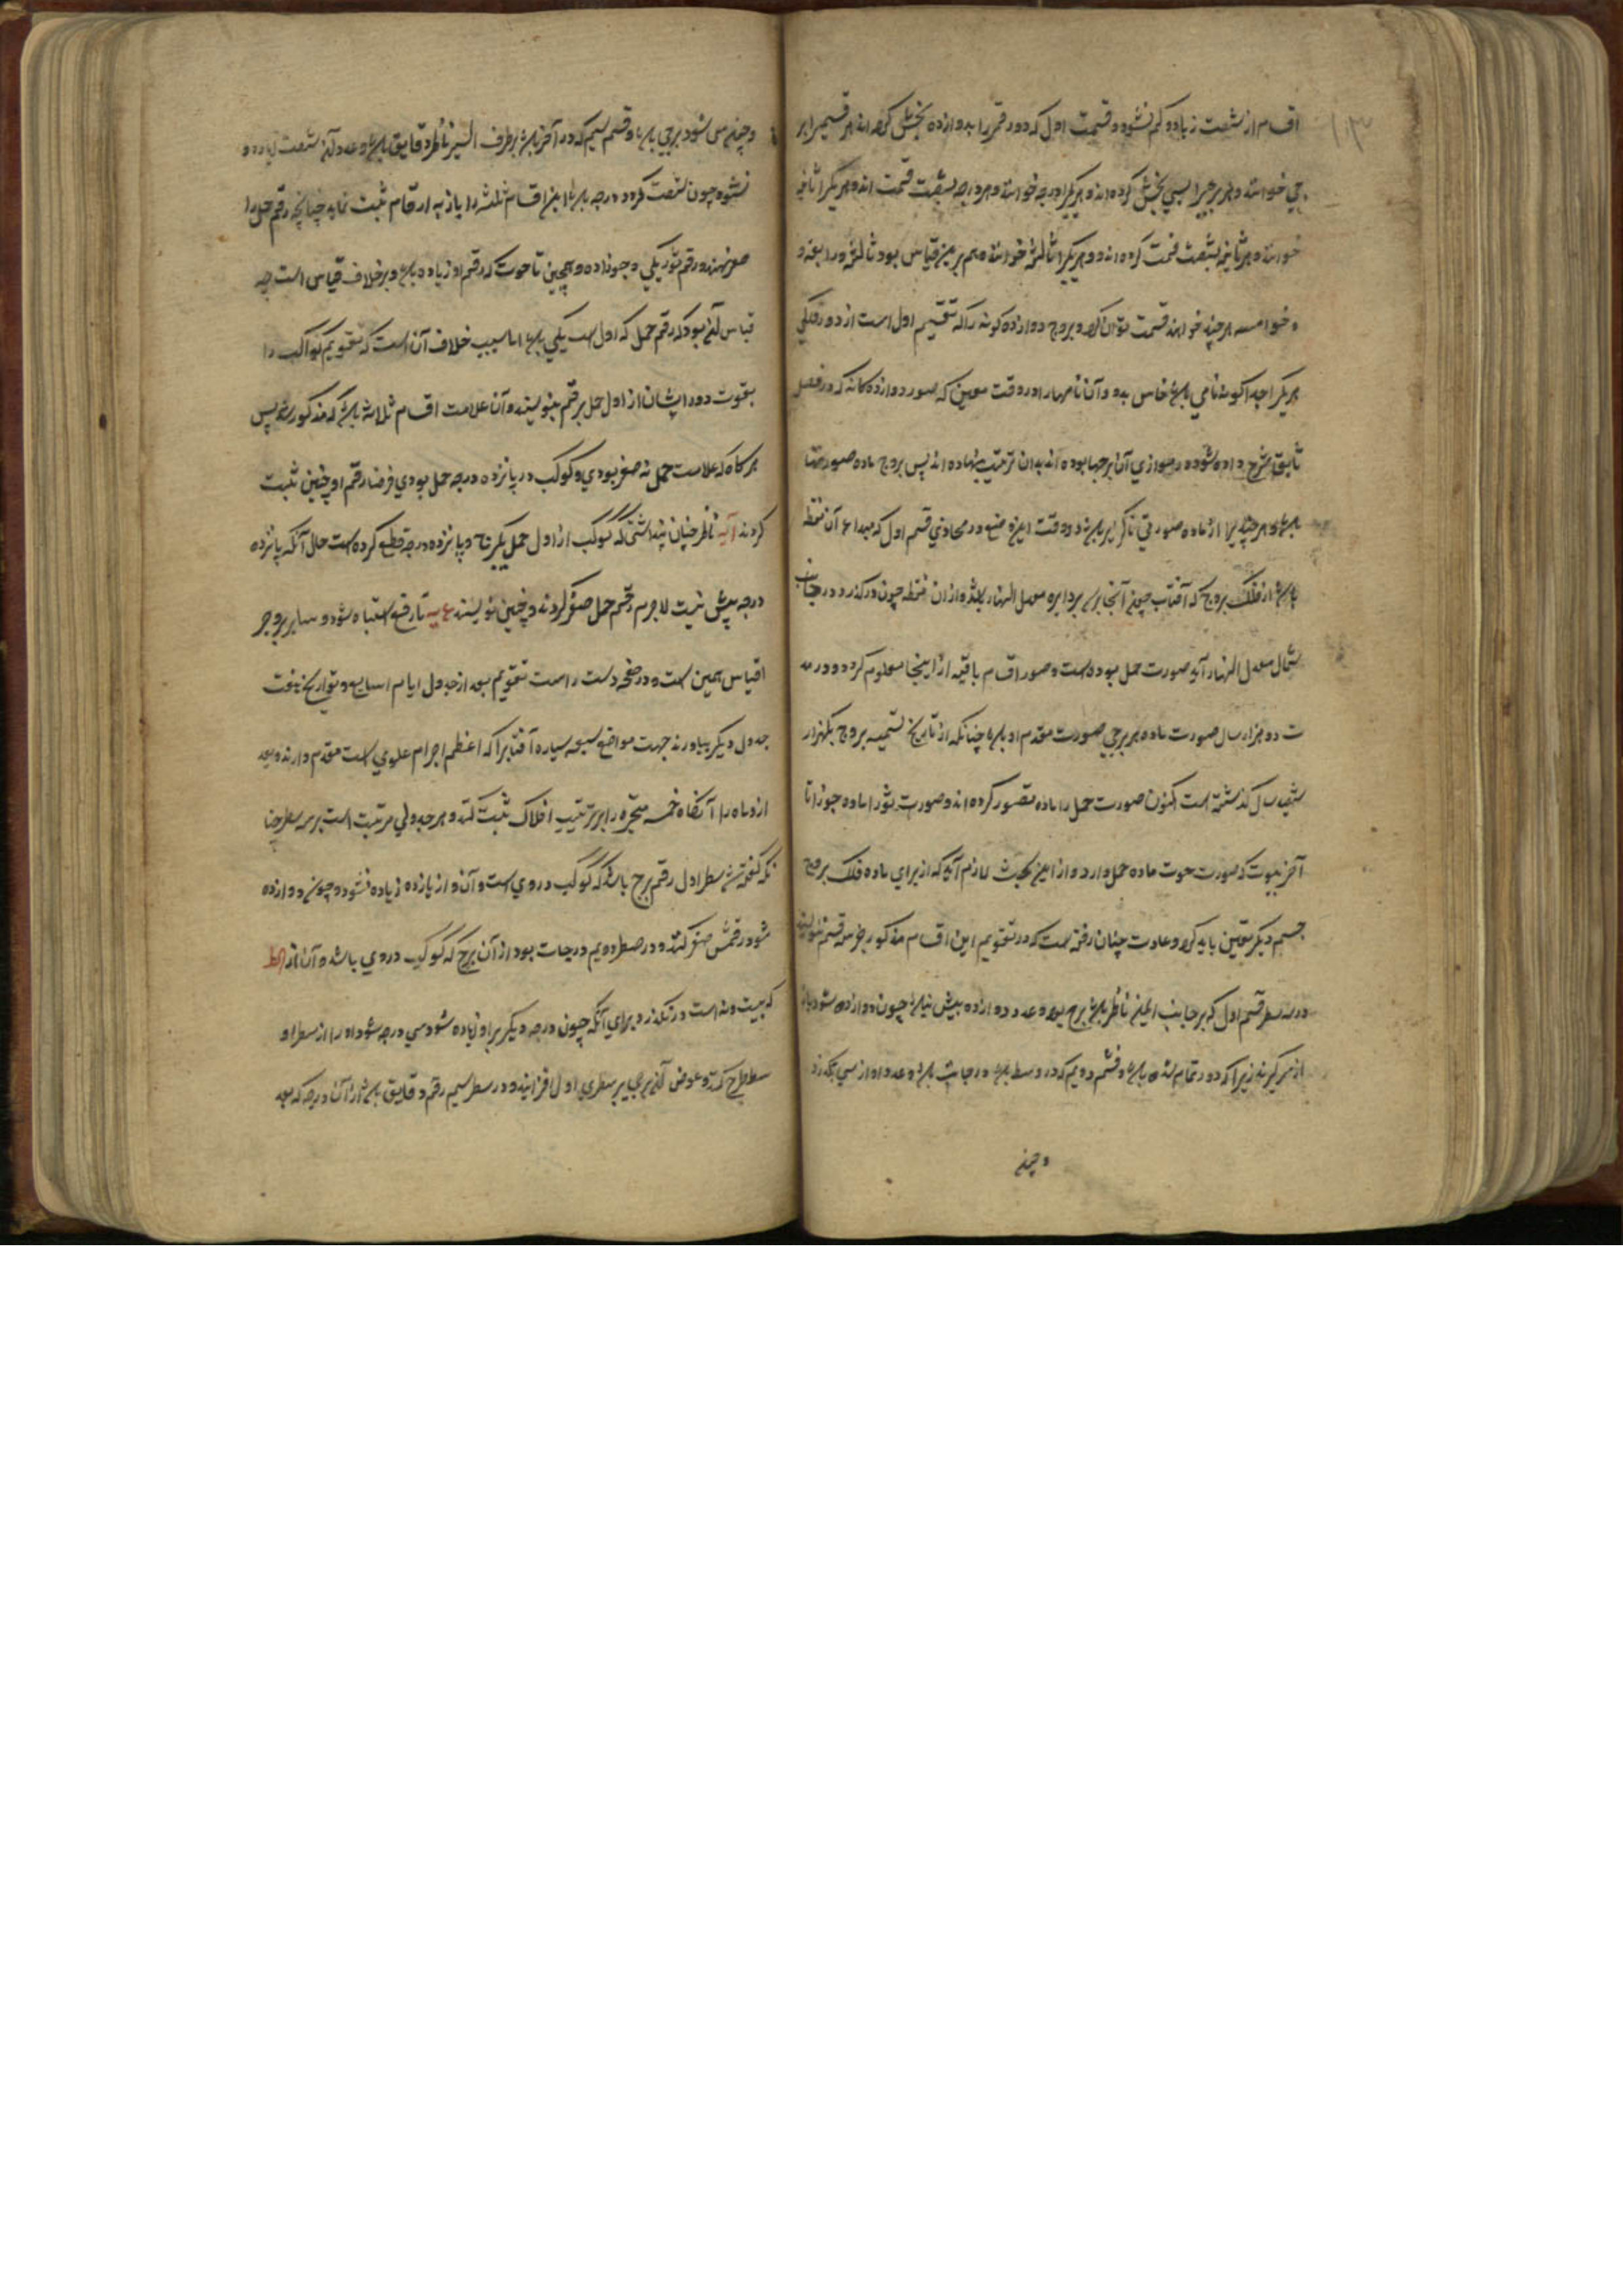 اقسام از شصت زیاده و کم نشود و قسمت اول که دور قمر را بدوازده بخش کرده اند هر قسمیرا بر
جی خوانند و هر برجیرا بسی بخش کرده اند و هر یکرا درجه خوانند و هر درجه بشصت قسمت اند و هر یکرا ثانیه
خوانند و هر ثانیه بشصت قسمت کرده اند و هر یکرا ثالثه خوانند و هم برین قیاس بود ثالثه و رابعه و
و خوامسه هر چند خواهند قسمت توان کرد و بروج دوازده کونه را که تقسیم اول است از دور فلکی
هر یکرا جداکونه نامی باشد خاص بدو و آن نامها در وقت معین که صور دوازده کانه که در فصل
سابق شرح داده شود در موازی آن برجها بوده اند بدان ترتیب نهاده اند پس بروج ماده صورتها
باشد و هر چند یرا از ماده صورتی ناکزیر باشد در وقت این وضع در محاذی قسم اول که مبداء آن نقطه
باشد از فلک بروج که آفتاب چون آنجا رسد بر دایره معدل النهار باشد و از ان نقطه چون در کذرد در جانب
شمال معدل النهار آید صورت حمل بوده است و صور اقسام باقیه از اینجا معلوم کردد و در مد
ت دو هزار سال صورت ماده هر برجی صورت مقدم او باشد چنانکه از تاریخ تسمیه بروج یکهزار
سال کذشته است اکنون صورت حمل را ماده تصور کرده اند و صورت ثور ا ماده جوزا تا
آخر بیوت که صورت حوت ماده حمل دارد و از این بحث لازم آید که از برای ماده فلک بروج
جسم دیکر تعین باید کرد و عادت چنان رفته است که در تقویم این اقسام مذکور جز سه قسم ننویسند
در سه سطر قسم اول که بر جانب ایمن ناظر باشد برج بود و عدد دوازده بیش نباشد چون دوازده شود باز
از سر کیرند زیرا که دور تمام شده باشد و قسم دویم که در وسط بود درجات باشد و عدد او از سی بکذرد
و چون
و چون سی شود برجی باشد و قسم سیم که در آخر باشد بر طرف ایسر ناظر دقایق باشد و عدد آن شصت زیاده
نشود چون شصت کردد درجه باشد این اقسام ثلثه را باز به ارقام ثبت نماید چنانچه رقم حمل را
صفر نهند و رقم ثور یکی و جوزا دو و همچنین تا حوت که رقم او زیاده باشد و بر خلاف قیاس است چه
قیاس آن بود که رقم حمل که اول است یکی باشد اما سبب خلاف آن است که تقویم کواکب را
بقوت دور ایشان از اول حمل بر قم بنویسند و آن علامت اقسام ثلاثه باشد که مذکور شد پس
هر کاه که علامت حمل نه صفر بودی و کوکب در پانزده درجه حمل بودی فرضا رقم او چنین ثبت
کردند آیه ناظر چنان پنداشتی که کوکب از اول حمل یکبرج و پانزده درجه قطع کرده است حال آنکه پانزده
درجه بیش نیست لاجرم رقم حمل صفر کردند و چنین نویسند تا رفع اشتباه شود و سایر بروج بر
اقیاس همین است و در صفحه دست راست تقویم بعد از جدول ایام اسابیع و تواریخ هفت
جدول دیکر بیاورند جهت مواضع سبعه سیاره آفتابرا که اعظم اجرام علوی است مقدم دارند و بعد
از و ماه را آنکاه خمسه متحیره را بر ترتیب افلاک ثبت کنند و هر جدولی مرتبت است بر سه سطر چنا
نکه کفته شد سطر اول رقم برج باشد که کوکب در وی است و آن و از یازده زیاده نشود و چون دوازده
شود رقمش صفر کنند و در سطر دویم درجات بود از آن برج که کوکب در وی باشد و آن از کط
که بیست و نه است در نکذرد برای آنکه چون درجه دیکر بر او زیاده شود سی درجه شود او را از سطر او
سطر طرح کنند و عوض آن برجی بر سطری اول افزایند و در سطر سیم رقم دقایق باشد از آن درجه که بعد